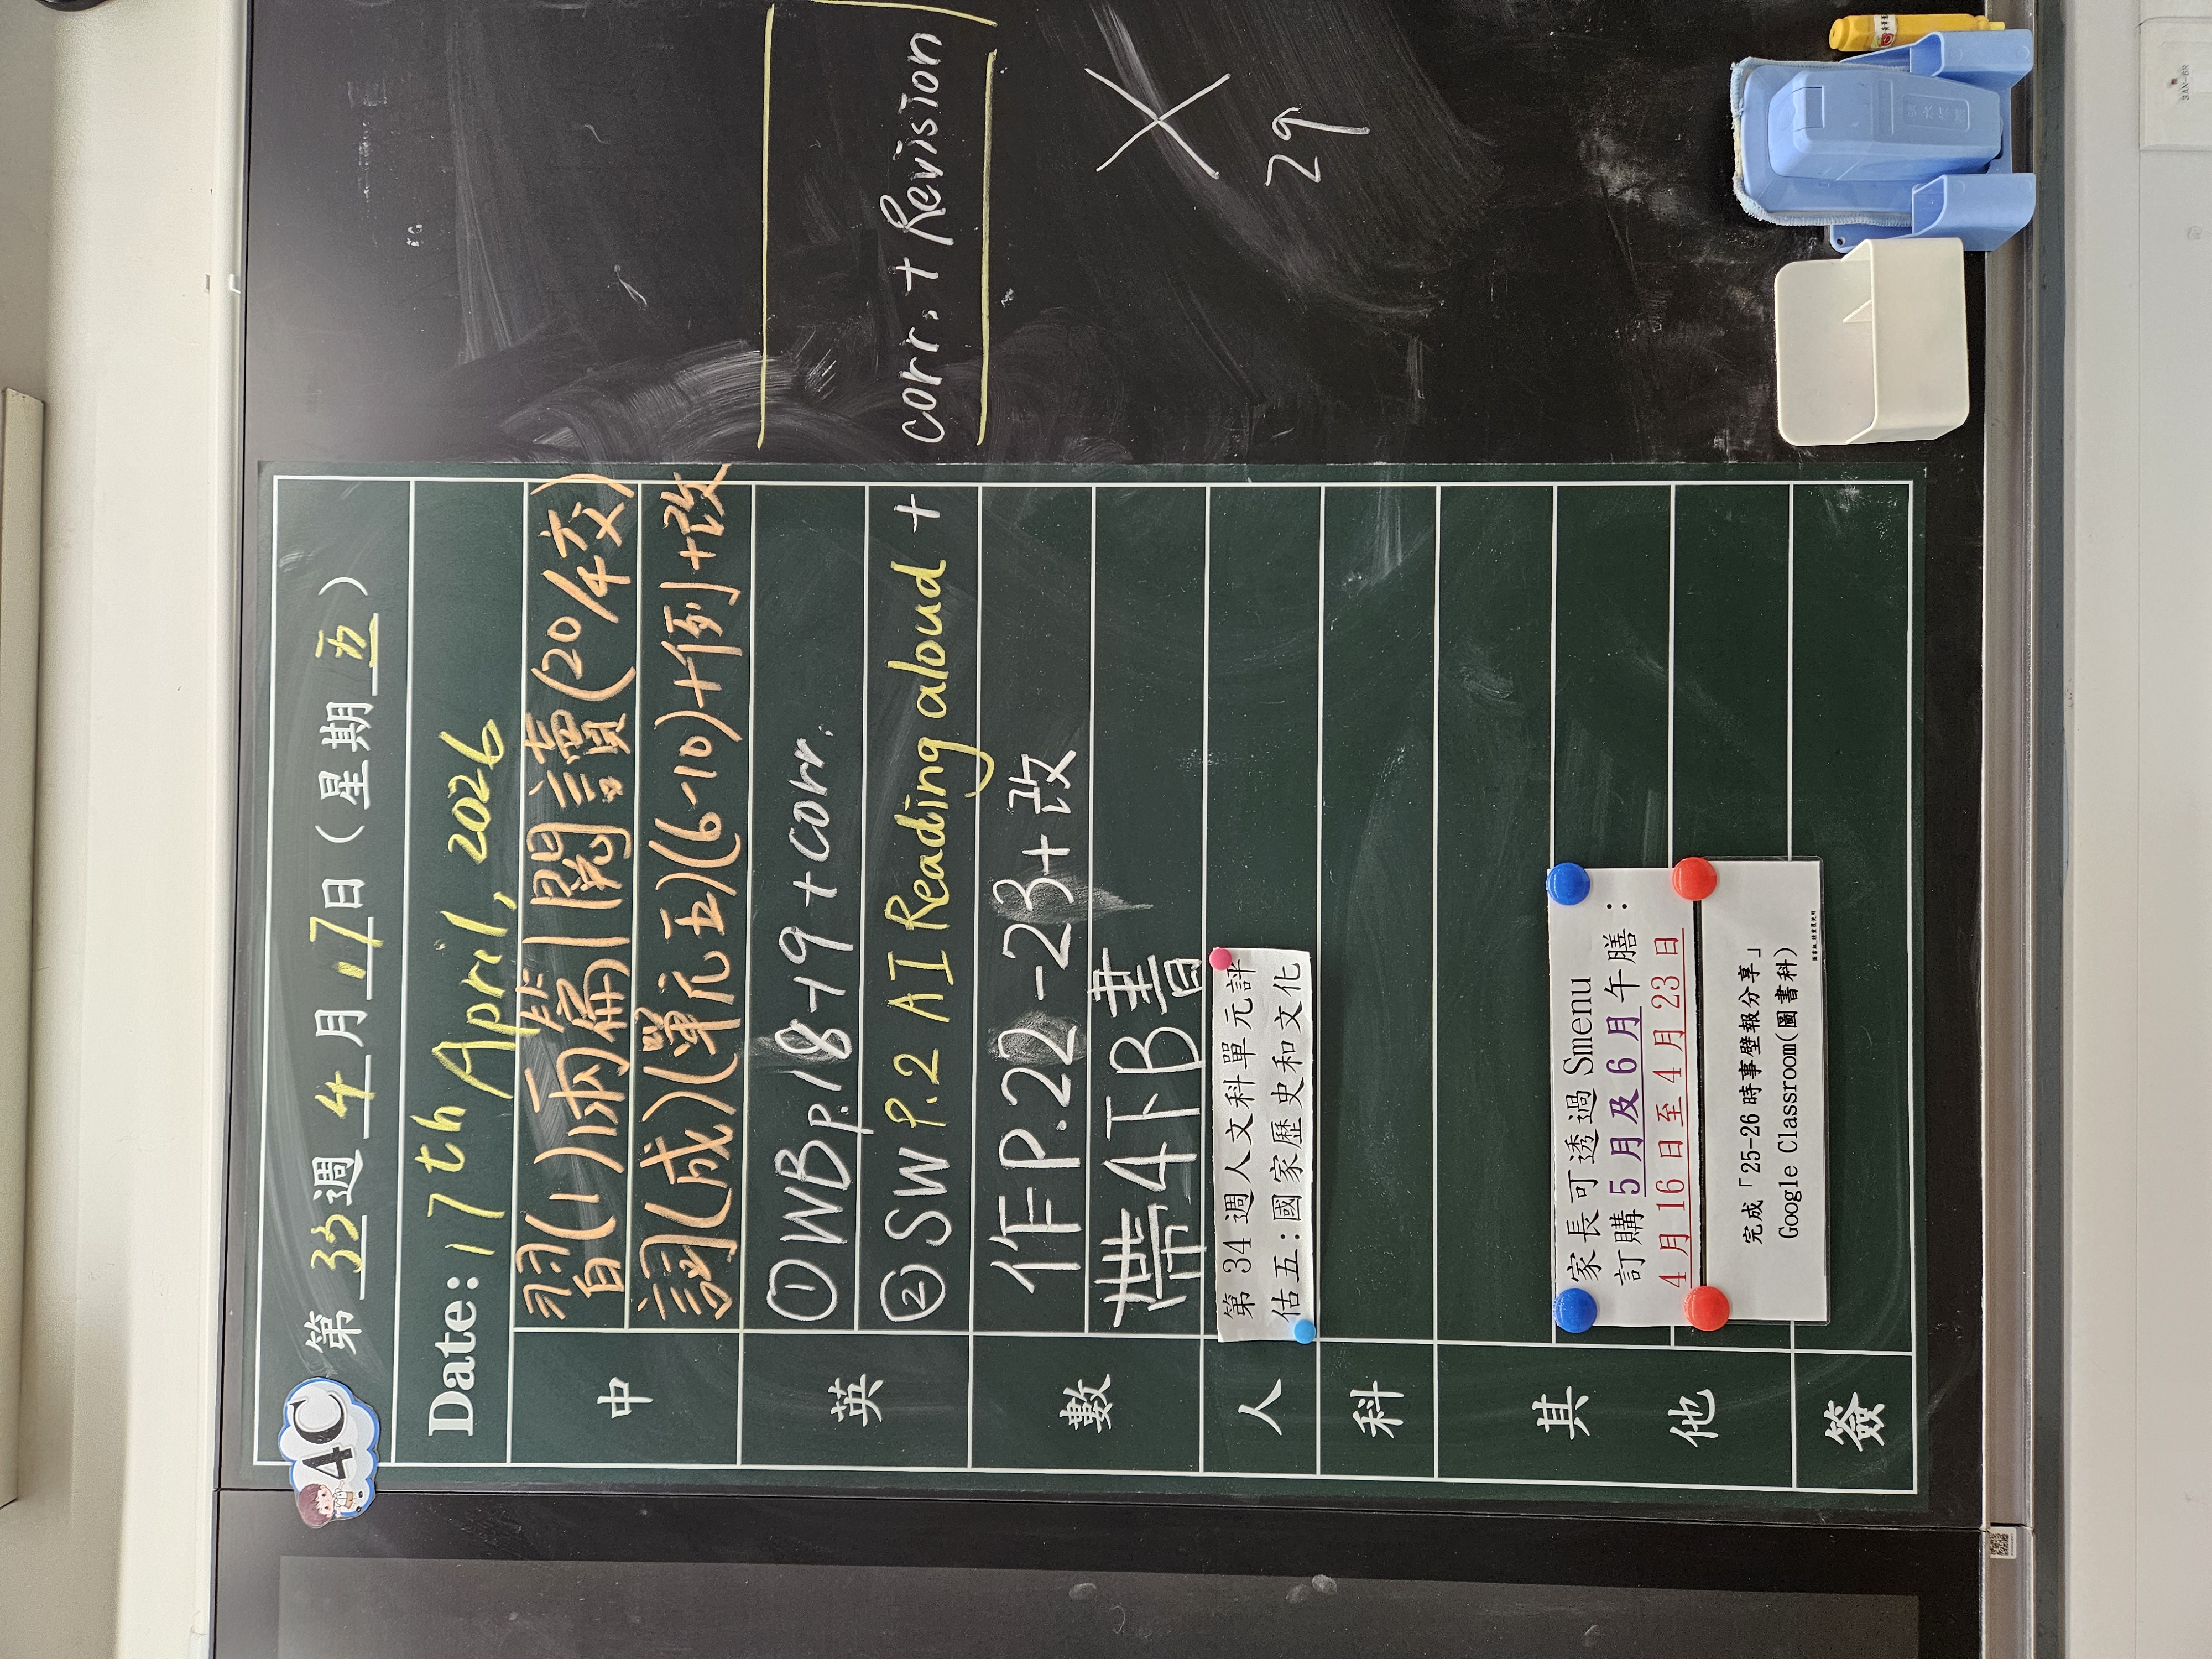 4C
第 33 週 4 月 17 日 ( 星期 五 )
Date: 17th April, 2026
中
習(1)兩篇閱讀(20/4交)
詞(成)(單元五)(6-10)+例+改
英
①WB p.18-19 + corr.
②SW P.2 AI Reading aloud + corr. + Revision
數
作P.22-23+改
帶4下B書
人
第 34 週人文科單元評
估五:國家歷史和文化
科
其他
家長可透過 Smenu
訂購 5 月及 6 月午膳:
4 月 16 日至 4 月 23 日
完成「25-26 時事壁報分享」
Google Classroom(圖書科)
簽
X
29